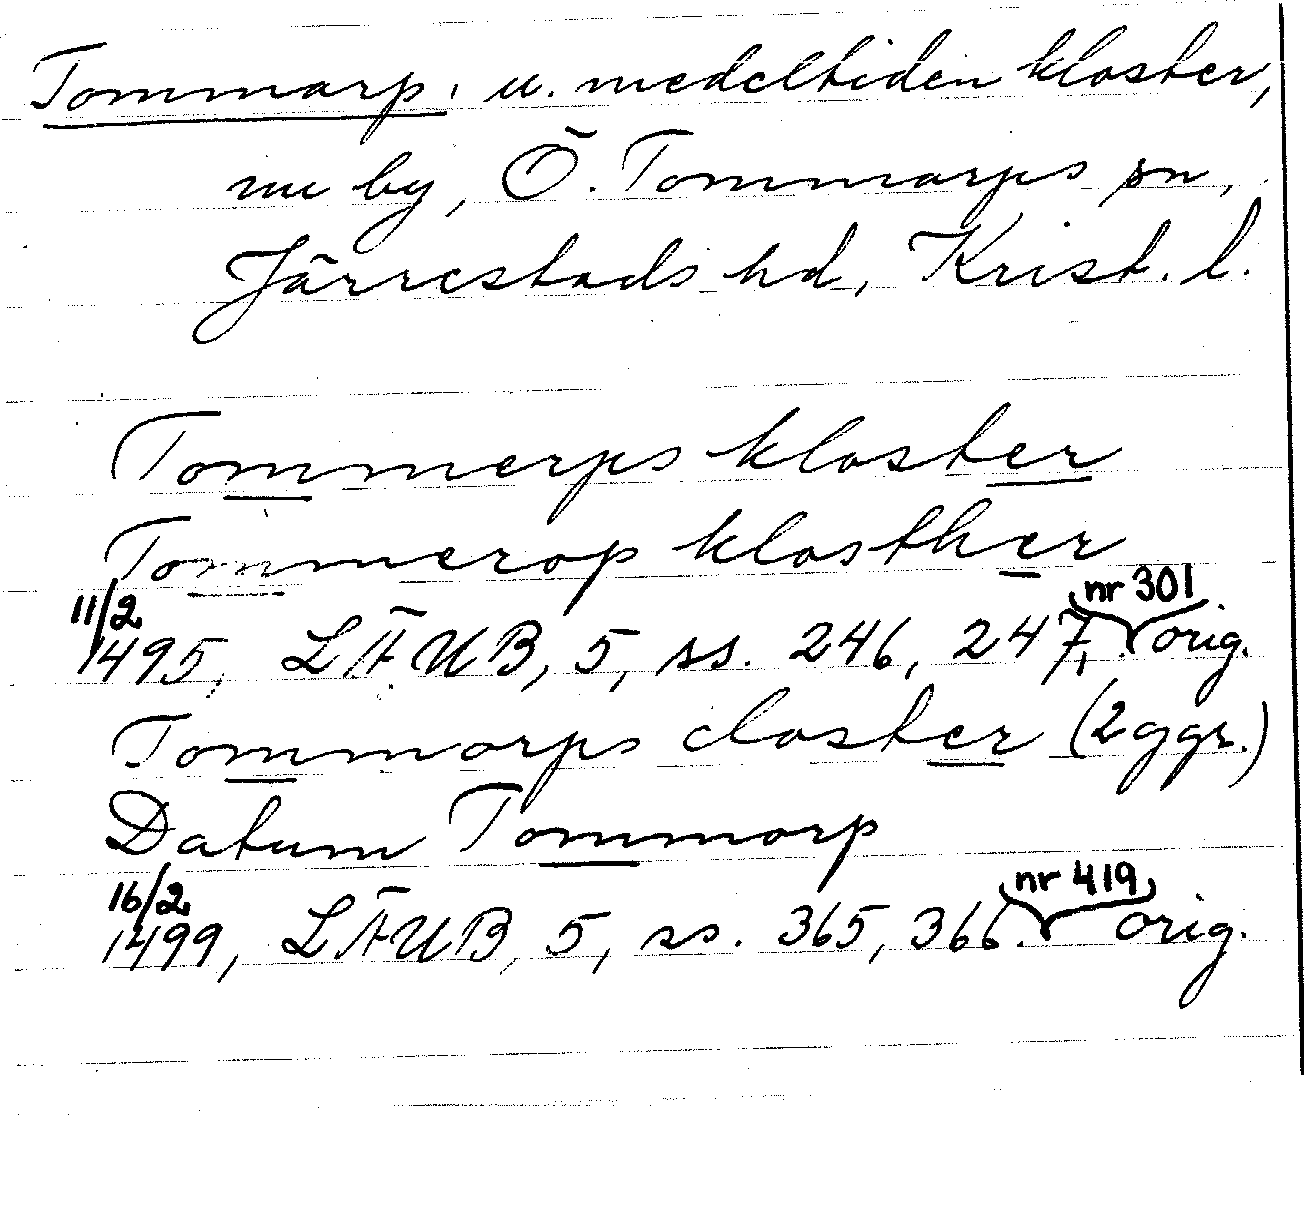 Tommarp, u. medeltiden kloster,
nu by, Ö. Tommarps sn,
Järrestads hd, Krist. l.
Tommerps kloster
Tommerop klosther
11/2 1495, LÄUB, 5, ss. 246, 247, (nr 301) orig.
Tommorps closter (2 ggr.)
Datum Tommorp
16/2 1499, LÄUB, 5, ss. 365, 366. (nr 419) orig.